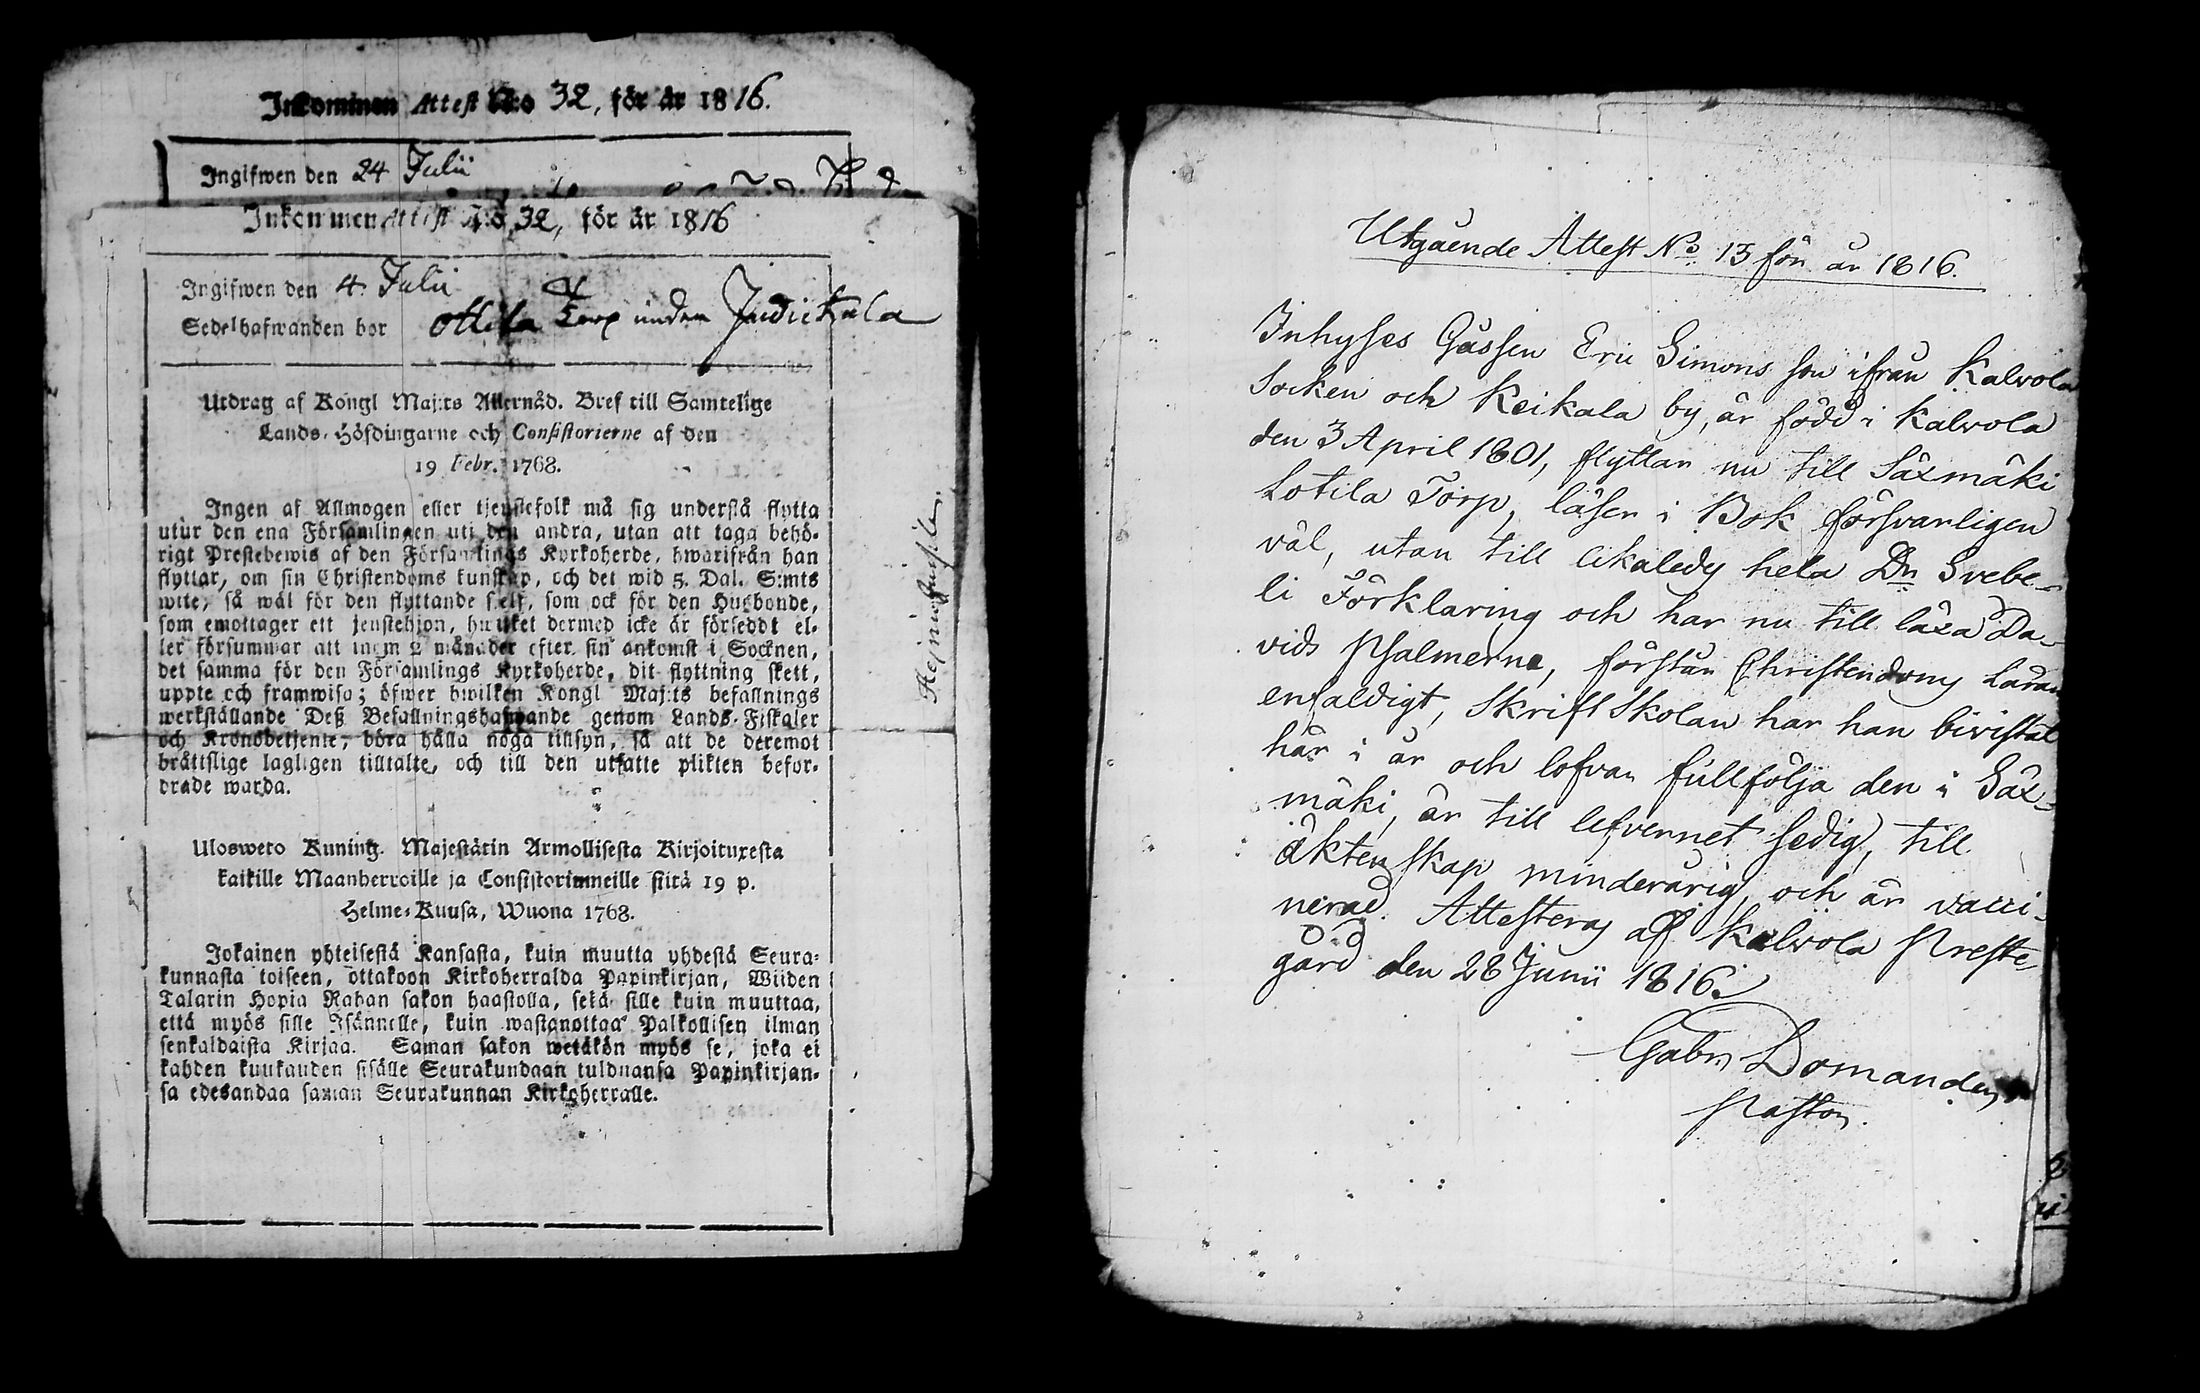 Inkommen Attest N:o 32, för år 1816.
Ingifwen den 24 Julii
Inkommen Attest N:o 32, för år 1816
Ingifwen den 4 Julii
Sedelhafwanden bor Torp under
Utdrag af Kongl Maj:ts Allernåd. Bref till Samtelige
Lands-Höfdingarne och Consistorierne af den
19 Febr. 1768.
Ingen af Allmogen eller tjenstefolk må sig understå flytta
utur den ena Församlingen uti den andra, utan att taga behö-
rigt Prestebewis af den Församlings Kyrkoherde, hwarifrån han
flyttar, om sin Christendoms kunskap, och det wid 5. Dal. S:mts
wite, så wäl för den flyttande sjelf, som ock för den Husbonde,
som emottager ett tjenstehjon, hwilket dermed icke är förseddt el-
ler försummar att inom 2 månader efter sin ankomst i Socknen,
det samma för den Församlings Kyrkoherde, dit flyttning skett,
uppte och framwisa; öfwer hwilken Kongl Maj:ts befallnings
werkställande Deß Befallningshafwande genom Lands-Fiskaler
och Kronobetjente, böra hålla noga tillsyn, så att de deremot
bråttslige lagligen tilltalte, och till den utsatte plikten befor-
drade warda.
Ulosweto Kuning. Majestätin Armollisesta Kirjoituxesta
kaikille Maanherroille ja Consistoriumneille siitä 19 p.
Helme-Kuusa, Wuona 1768.
Jokainen yhteisestä Kansasta, kuin muutta yhdestä Seura-
kunnasta toiseen, ottakoon Kirkoherralda Papinkirjan, Wiiden
Talarin Hopia Rahan sakon haastolla, sekä sille kuin muuttaa,
että myös sille Isännelle, kuin wastanottaa Palkollisen ilman
senkaldaista Kirjaa. Saman sakon wetäkön myös se, joka ei
kahden kuukauden sisälle Seurakundaan tulduansa Papinkirjan-
sa edesandaa saman Seurakunnan Kirkoherralle.
Utgående Attest No 13 för år 1816.
Inhyses Gossen Eric Simons son ifrån Kalvola
Socken och Keikala by, är född i Kalvola
den 3 April 1801, flyttar nu till Säxmäki
Lotila Torp, läser i Bok försvarligen
väl, utan till likaledes hela Dn Svebe-
li Förklaring och har nu till läxa Da-
vids Psalmerne, förstår Christendoms Läran
enfaldigt, Skrift Skolan har han bivistat
här i år och lofvar fullfölja den i Säx-
mäki, är till lefvernet sedig, till
äktenskap minderårig, och är vacci-
nerad. Attesteras af Kalvola Preste-
gård den 28 Junii 1816.
Gabr Domander
Pastor.